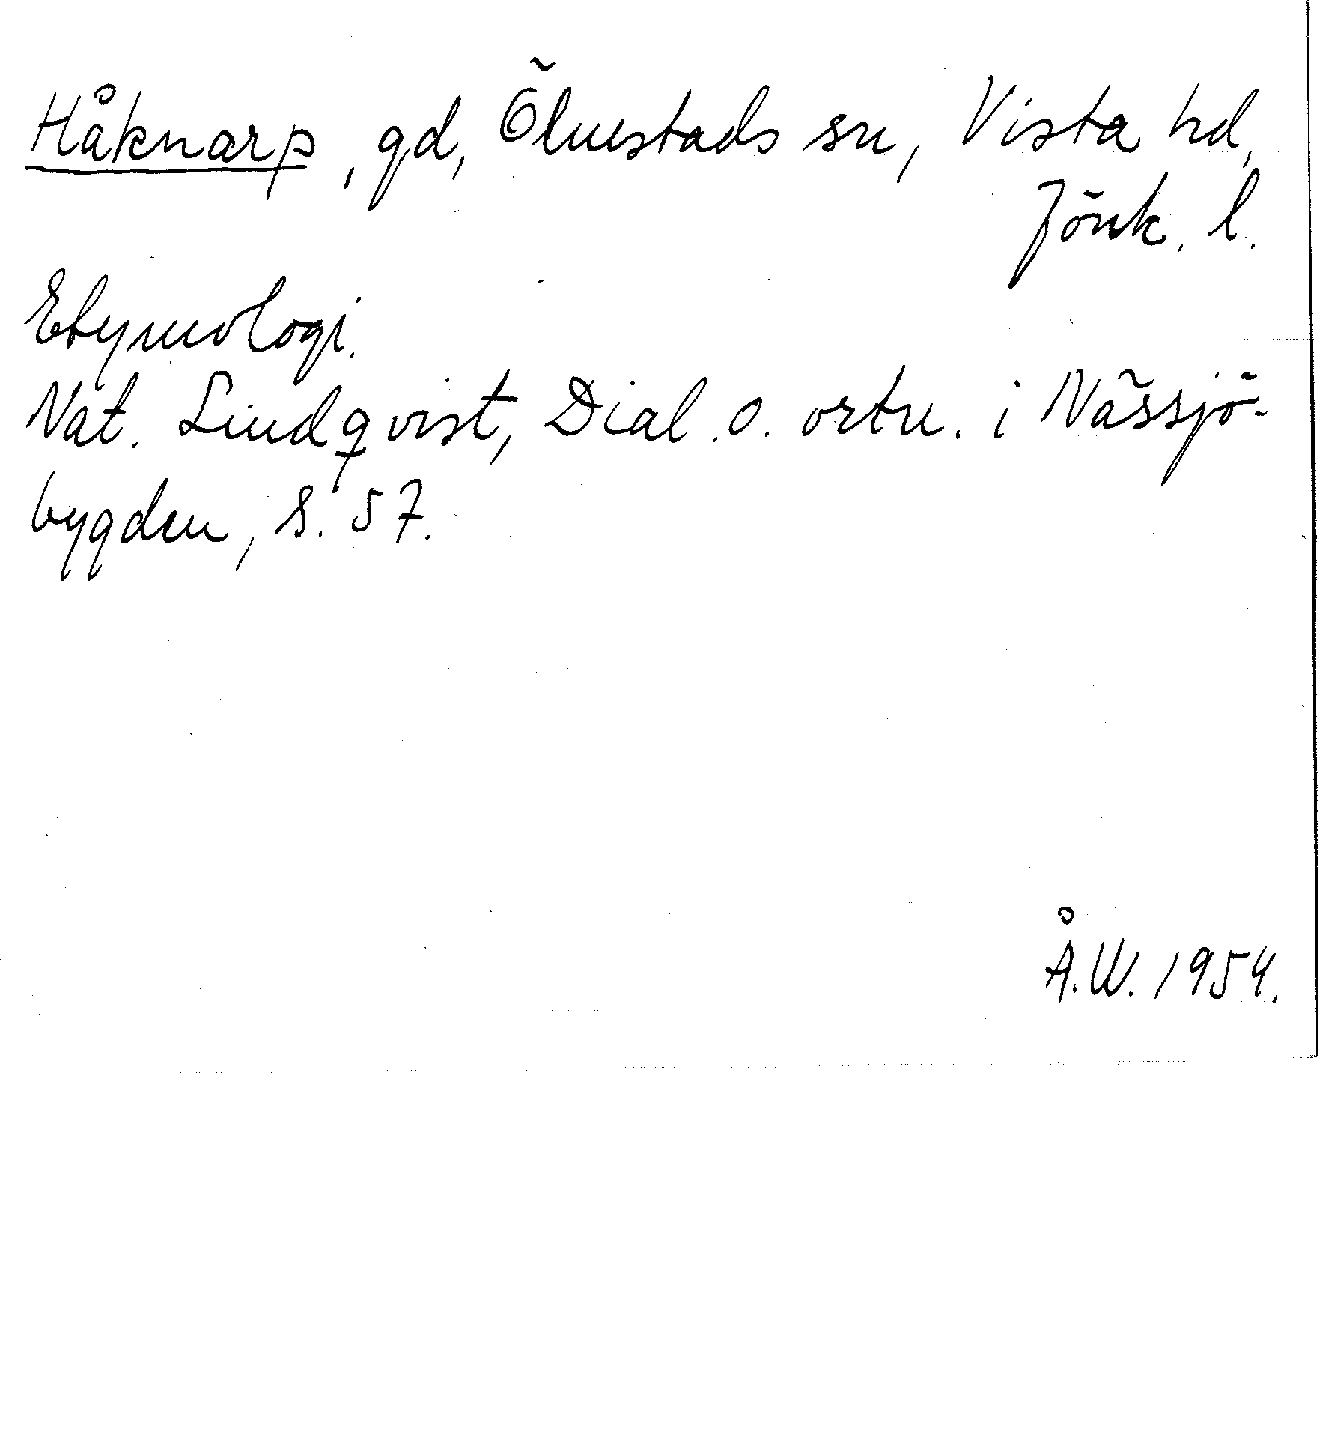 Håknarp, gd, Ölmstads sn, Vista hd,
Jönk. l.
Etymologi.
Nat. Lindqvist, Dial. o. ortn. i Nässjö-
bygden, s. 57.
Å.W. 1954.